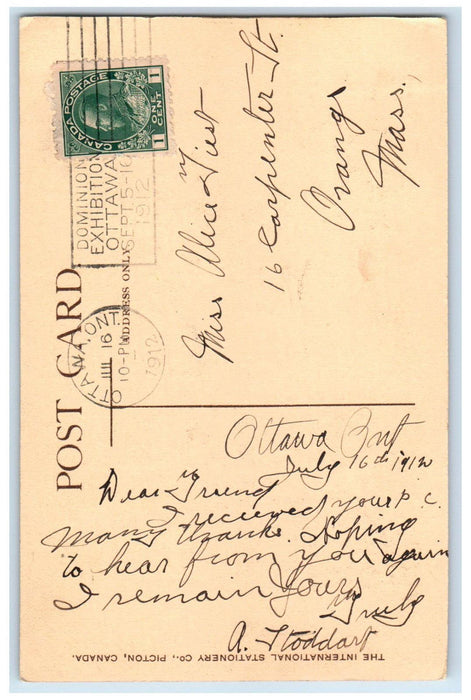 CANADA POSTAGE
1 ONE CENT 1
DOMINION
EXHIBITION
OTTAWA
SEPT. 5-16
1912
OTTAWA, ONT.
JUL 16
10-PM
1912
POST CARD
ADDRESS ONLY
Miss Alice
16 Carpenter St.
Orange
Mass.
Ottawa Ont
July 16th 1912
Dear Friend
I received your p.c.
Many thanks. Hoping
to hear from you again
I remain Yours
Truly
A. Stoddart
THE INTERNATIONAL STATIONERY CO., PICTON, CANADA.